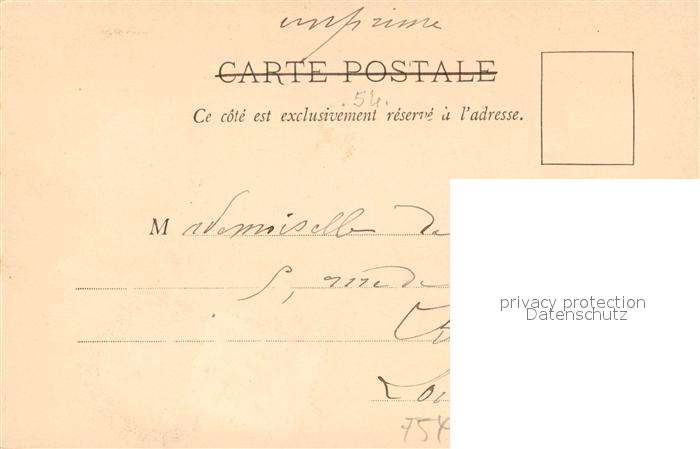 imprimé
CARTE POSTALE
54.
Ce côté est exclusivement réservé à l'adresse.
Mademoiselle de
5, rue de
Lo
754
privacy protection
Datenschutz